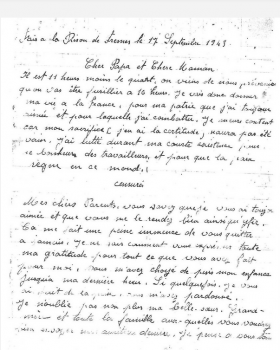 Ecris a la Prison de Fresnes le 17 Septembre 1943.
Cher Papa et Chere Maman
Il est 11 heures moins le quart, on viens de nous prévenir
qu'on vas être fusillier a 16 heures. Je vais donc donner
ma vie a la France, pour ma patrie que j'ai toujours
aimé et pour laquelle j'ai combattu. Je meurs content
car mon sacrifice, j'en ai la certitude, naura pas été
vain. J'ai lutté durant ma courte
ce bonheur des travailleurs, et pour que la
règne en ce monde,
censuré
Mes chers Parents, vous savez que je vous ai toujours
aimée et que vous me le rendez bien
Ca me fait une peine immense de vous quitter
a jamais. Je ne sais comment vous toute
ma gratitude pour tout ce que vous avez fait
pour moi, vous m'avez choyé depuis mon enfance
jusqu'a ma dernière heure. Si quelquefois, je vous
ai de la vous m'avez pardonné.
Je n'oublie pas non plus ma Belle-sœur, Grand-
et toute la famille aux-quelles vous voudrez
Je pense a vous